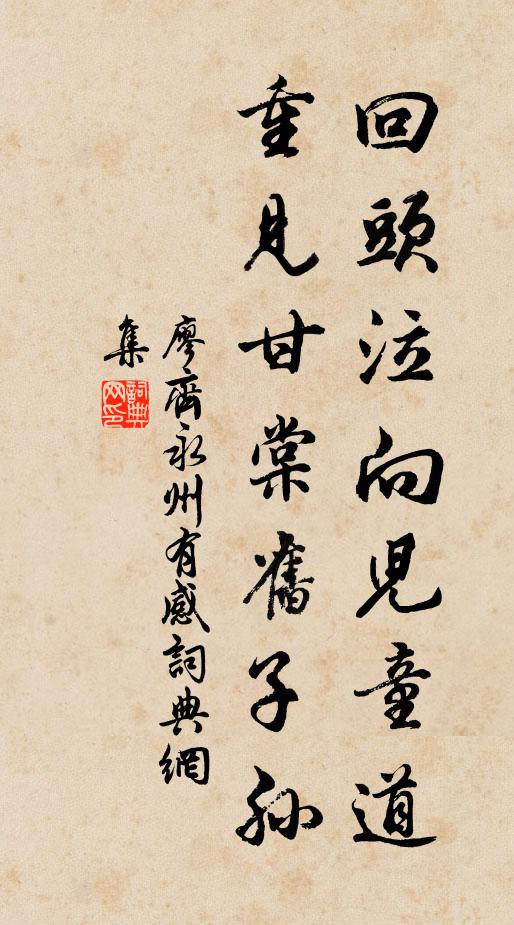 回頭泣向兒童道
重見甘棠舊子孫
廖齊永州有感詞典網
集
詞典網印